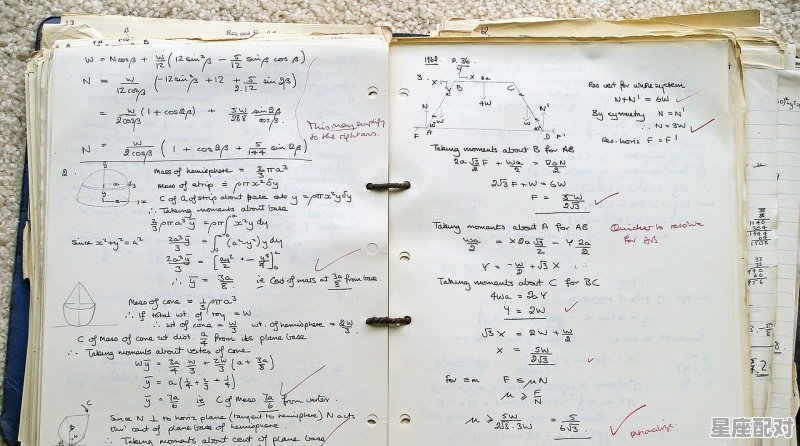 33
Res vert
W = Ncosβ + W/12 (12 sin²β - 5/12 sinβ cosβ)
N = W/12cosβ (-12sin²β + 12 + 5/2.12 sin 2β)
= W/2cosβ (1 + cos2β) + 5W/288 sin2β/cosβ
This may simplify
to the right ans.
N = W/2cosβ (1 + cos2β + 5/144 sin2β)
2.
Mass of hemisphere = 2/3 πρa³
Mass of strip ≠ ρπx²δy
C of G of strip about base at y = ρπx²yδy
∴ Taking moments about base
2/3 ρπa³ȳ = ρπ∫x²y dy
since x²+y² = a²
2a³ȳ/3 = ∫(a²-y²)y dy
2a³ȳ/3 = [ay²/2 - y⁴/4]
∴ ȳ = 3a/8 ie Cent of mass at 3a/8 from base.
Mass of cone = 1/3 ρπa³
∴ If total wt. of toy = W
∴ wt of cone = W/3 wt. of hemisphere = 2W/3
C of mass of cone at dist. a/4 from its plane base
∴ Taking moments about vertex of cone
Wȳ = 3a/4 W/3 + 2W/3 (a + 3a/8)
ȳ = 7a/6 ie C of mass 7a/6 from vertex.
Since N ⊥ to horiz plane (tangent to hemisphere) N acts
thr' cent of plane base of hemisphere.
∴ Taking moments about cent of plane base
1968 P. 36
3.
X
Y
B
C
4W
N
N'
W
W
F
A
D
F'
Res vert for whole system
N+N' = 6W
By symmetry N = N'
∴ N = 3W
Res. horiz F = F'
Taking moments about B for AB
2a√3/2 F + Wa/2 = 2aN/2
2√3F + W = 6W
F = 5W/2√3
Taking moments about A for AB
Quicker to resolve
for AB
Wa/2 = X2a√3/2 - Y 2a/2
Y = -W/2 + √3X
Taking moments about C for BC
4Wa = 2aY
Y = 2W
√3X = 2W + W/2
X = 5W/2√3
for =m F ≤ μN
μ ≥ F/N
μ ≥ 5W/2√3.3W = 5/6√3
rationalize.
星座配对